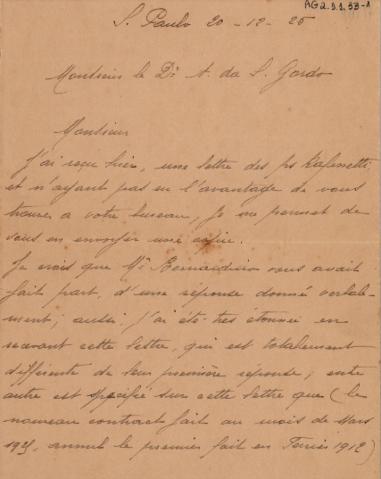 AG2.9.1.53-1
S. Paulo 20-12-25
Monsieur le Dr A. da S. Gordo
Monsieur
J'ai reçu hier, une lettre des ps
et n'ayant pas eu l'avantage de vous
trouver a votre bureau, je me permet de
vous en envoyer une copie.
Je crois que Mr Bernardino vous avait
fait part, d'une réponse donné verbale-
ment; aussi, j'ai été tres étonnée en
recevant cette lettre, qui est totalement
différente de leur première reponse; entre
autre est spécifié sur cette lettre que (le
nouveau contract fait au mois de Mars
annul le premier fait en Fevrier 1912)